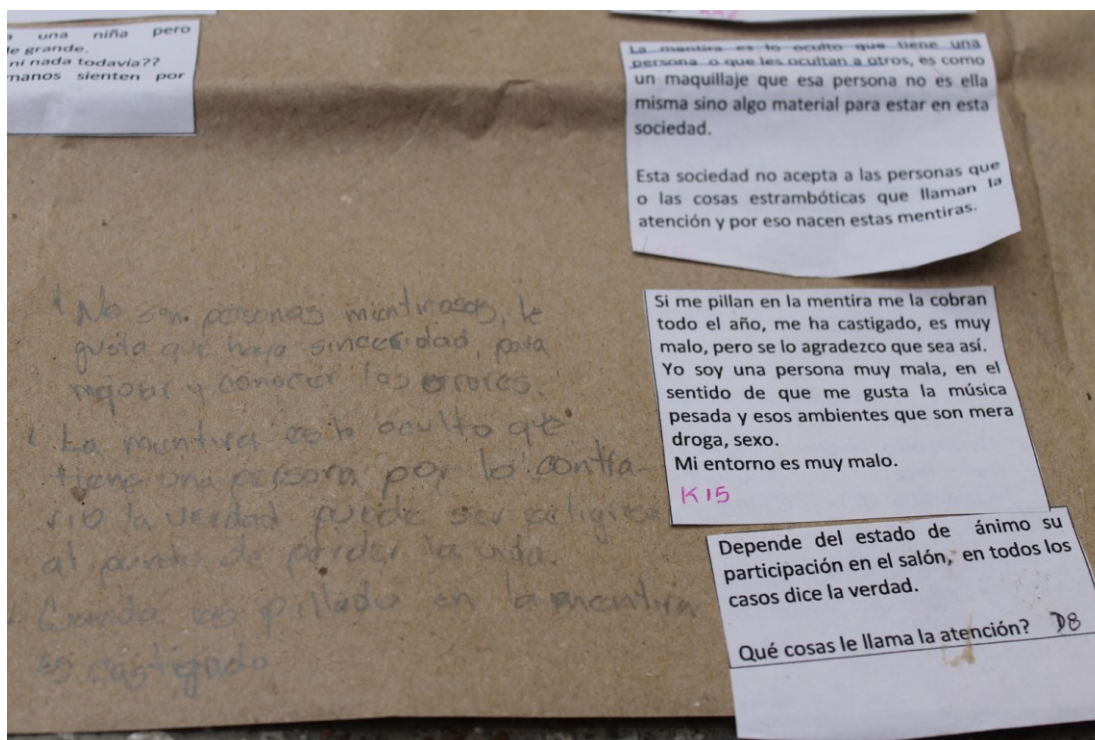 una niña pero
de grande.
ni nada todavía??
manos sienten por
La mentira es lo oculto que tiene una
persona o que les ocultan a otros, es como
un maquillaje que esa persona no es ella
misma sino algo material para estar en esta
sociedad.
Esta sociedad no acepta a las personas que
o las cosas estrambóticas que llaman la
atención y por eso nacen estas mentiras.
No son personas mentirosas, le
gusta que haya sinceridad, para
mejorar y conocer los errores.
La mentira es lo oculto que
tiene una persona por lo contra-
rio la verdad puede ser peligrosa
al punto de perder la vida.
Cuando es pillado en la mentira
es castigado
Si me pillan en la mentira me la cobran
todo el año, me ha castigado, es muy
malo, pero se lo agradezco que sea así.
Yo soy una persona muy mala, en el
sentido de que me gusta la música
pesada y esos ambientes que son mera
droga, sexo.
Mi entorno es muy malo.
K15
Depende del estado de ánimo su
participación en el salón, en todos los
casos dice la verdad.
Qué cosas le llama la atención? D8